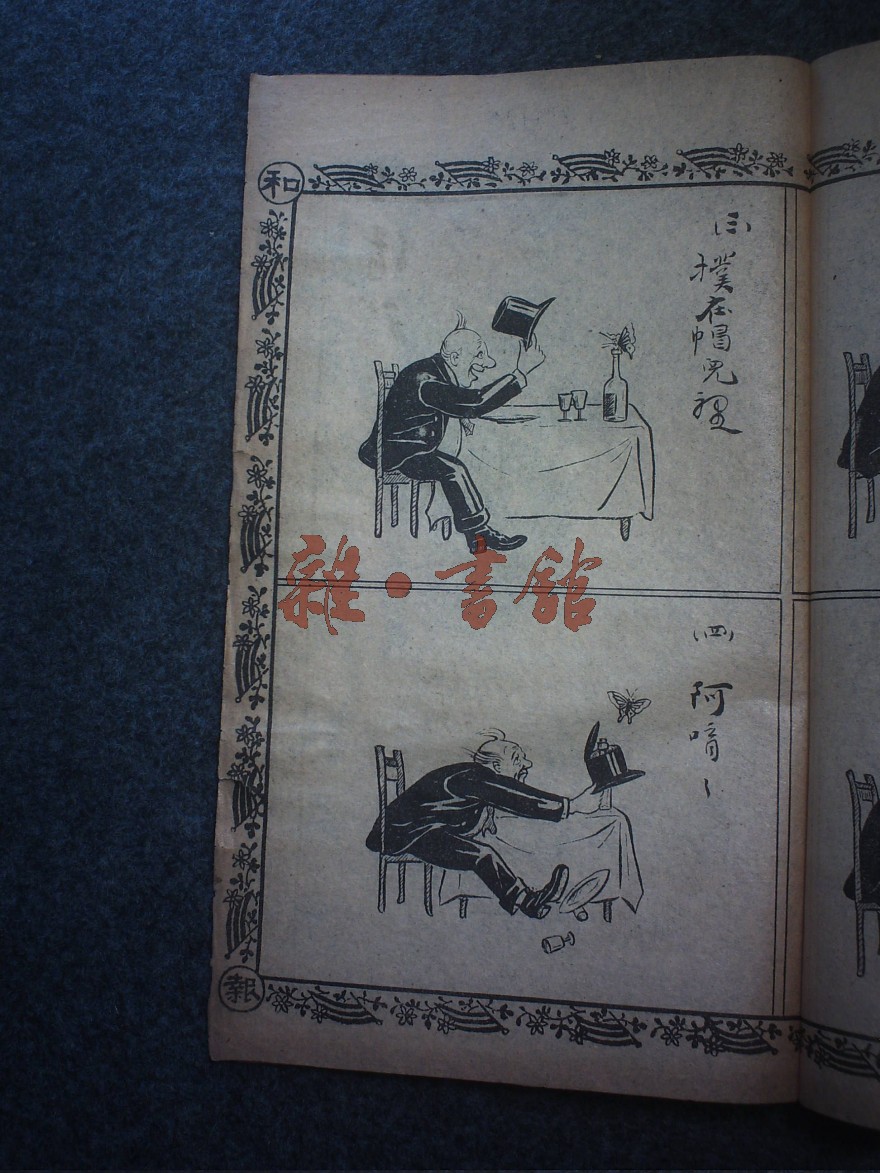 和
(三)
撲在帽兒裡
雜·書館
(四)
阿唷
報